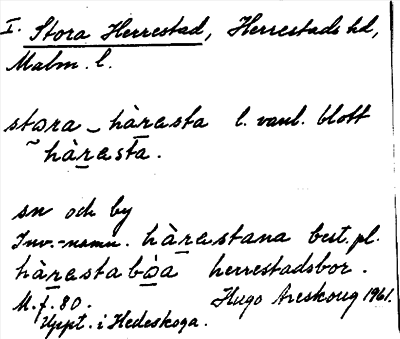 I. Stora Herrestad, Herrestads hd,
Malm. l.
stɑra – hàrasta l. vanl. blott
~ hàrasta.
sn och by
Inv.-namn. hàrastana best. pl.
hàrastabòa herrestadsbor.
M. f. 80. Hugo Areskoug 1961.
Uppt. i Hedeskoga.